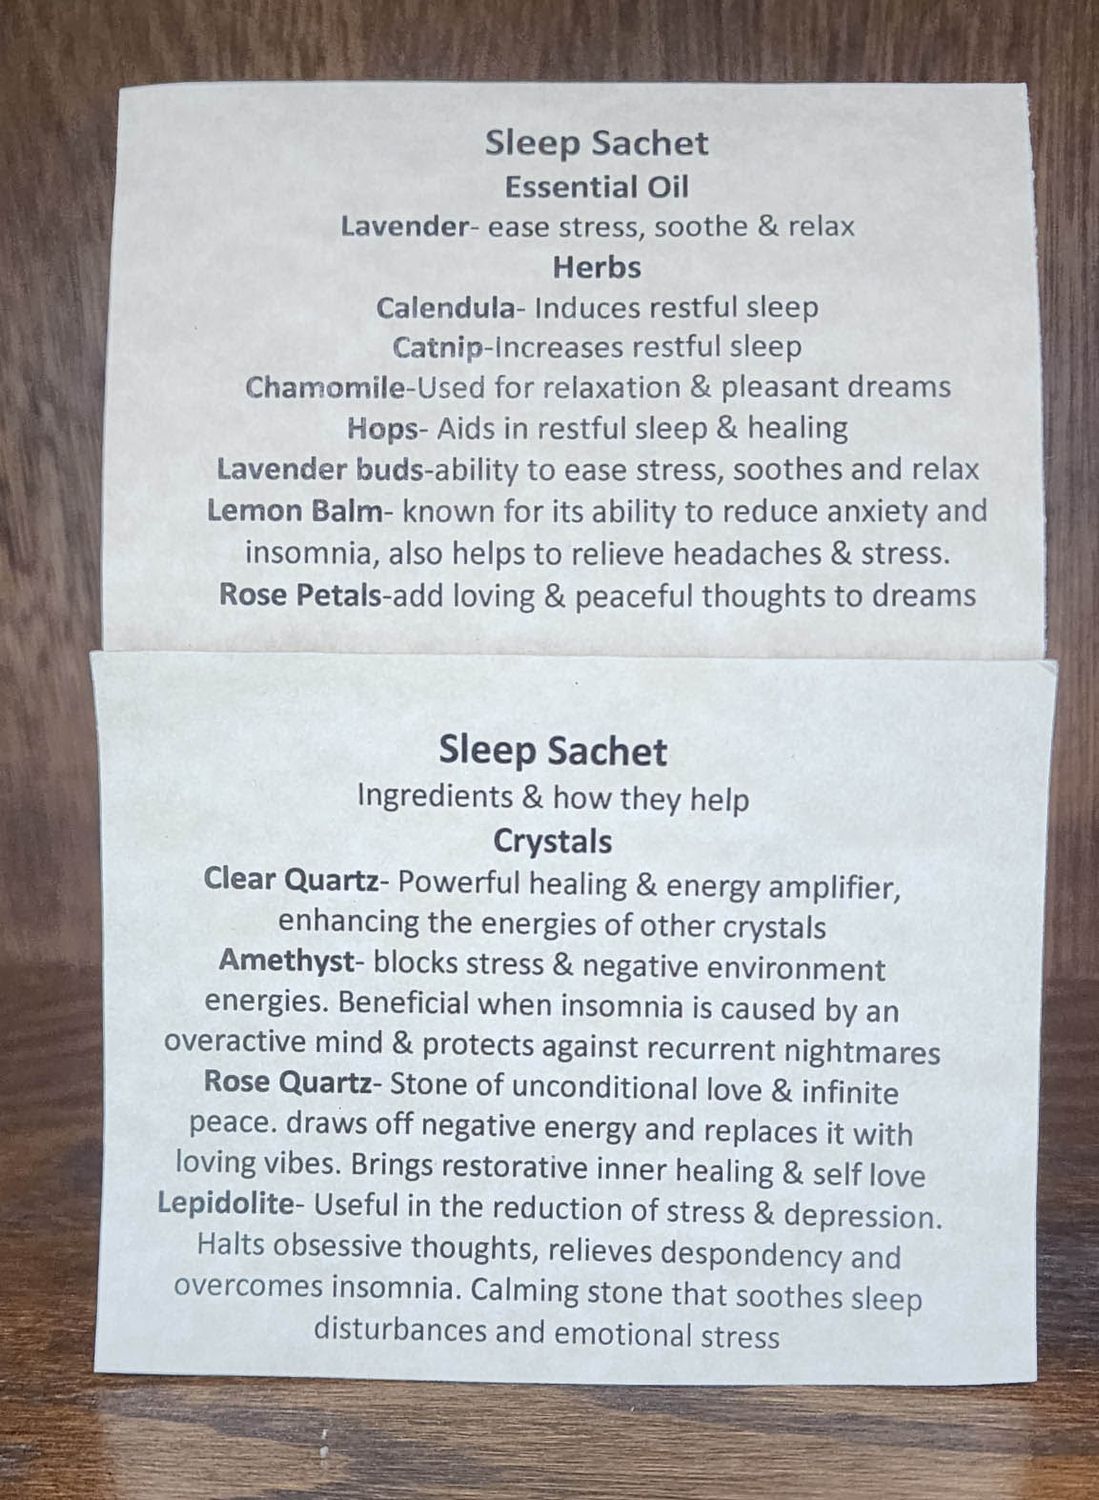 Sleep Sachet
Essential Oil
Lavender- ease stress, soothe & relax
Herbs
Calendula- Induces restful sleep
Catnip-Increases restful sleep
Chamomile-Used for relaxation & pleasant dreams
Hops- Aids in restful sleep & healing
Lavender buds-ability to ease stress, soothes and relax
Lemon Balm- known for its ability to reduce anxiety and
insomnia, also helps to relieve headaches & stress.
Rose Petals-add loving & peaceful thoughts to dreams
Sleep Sachet
Ingredients & how they help
Crystals
Clear Quartz- Powerful healing & energy amplifier,
enhancing the energies of other crystals
Amethyst- blocks stress & negative environment
energies. Beneficial when insomnia is caused by an
overactive mind & protects against recurrent nightmares
Rose Quartz- Stone of unconditional love & infinite
peace. draws off negative energy and replaces it with
loving vibes. Brings restorative inner healing & self love
Lepidolite- Useful in the reduction of stress & depression.
Halts obsessive thoughts, relieves despondency and
overcomes insomnia. Calming stone that soothes sleep
disturbances and emotional stress